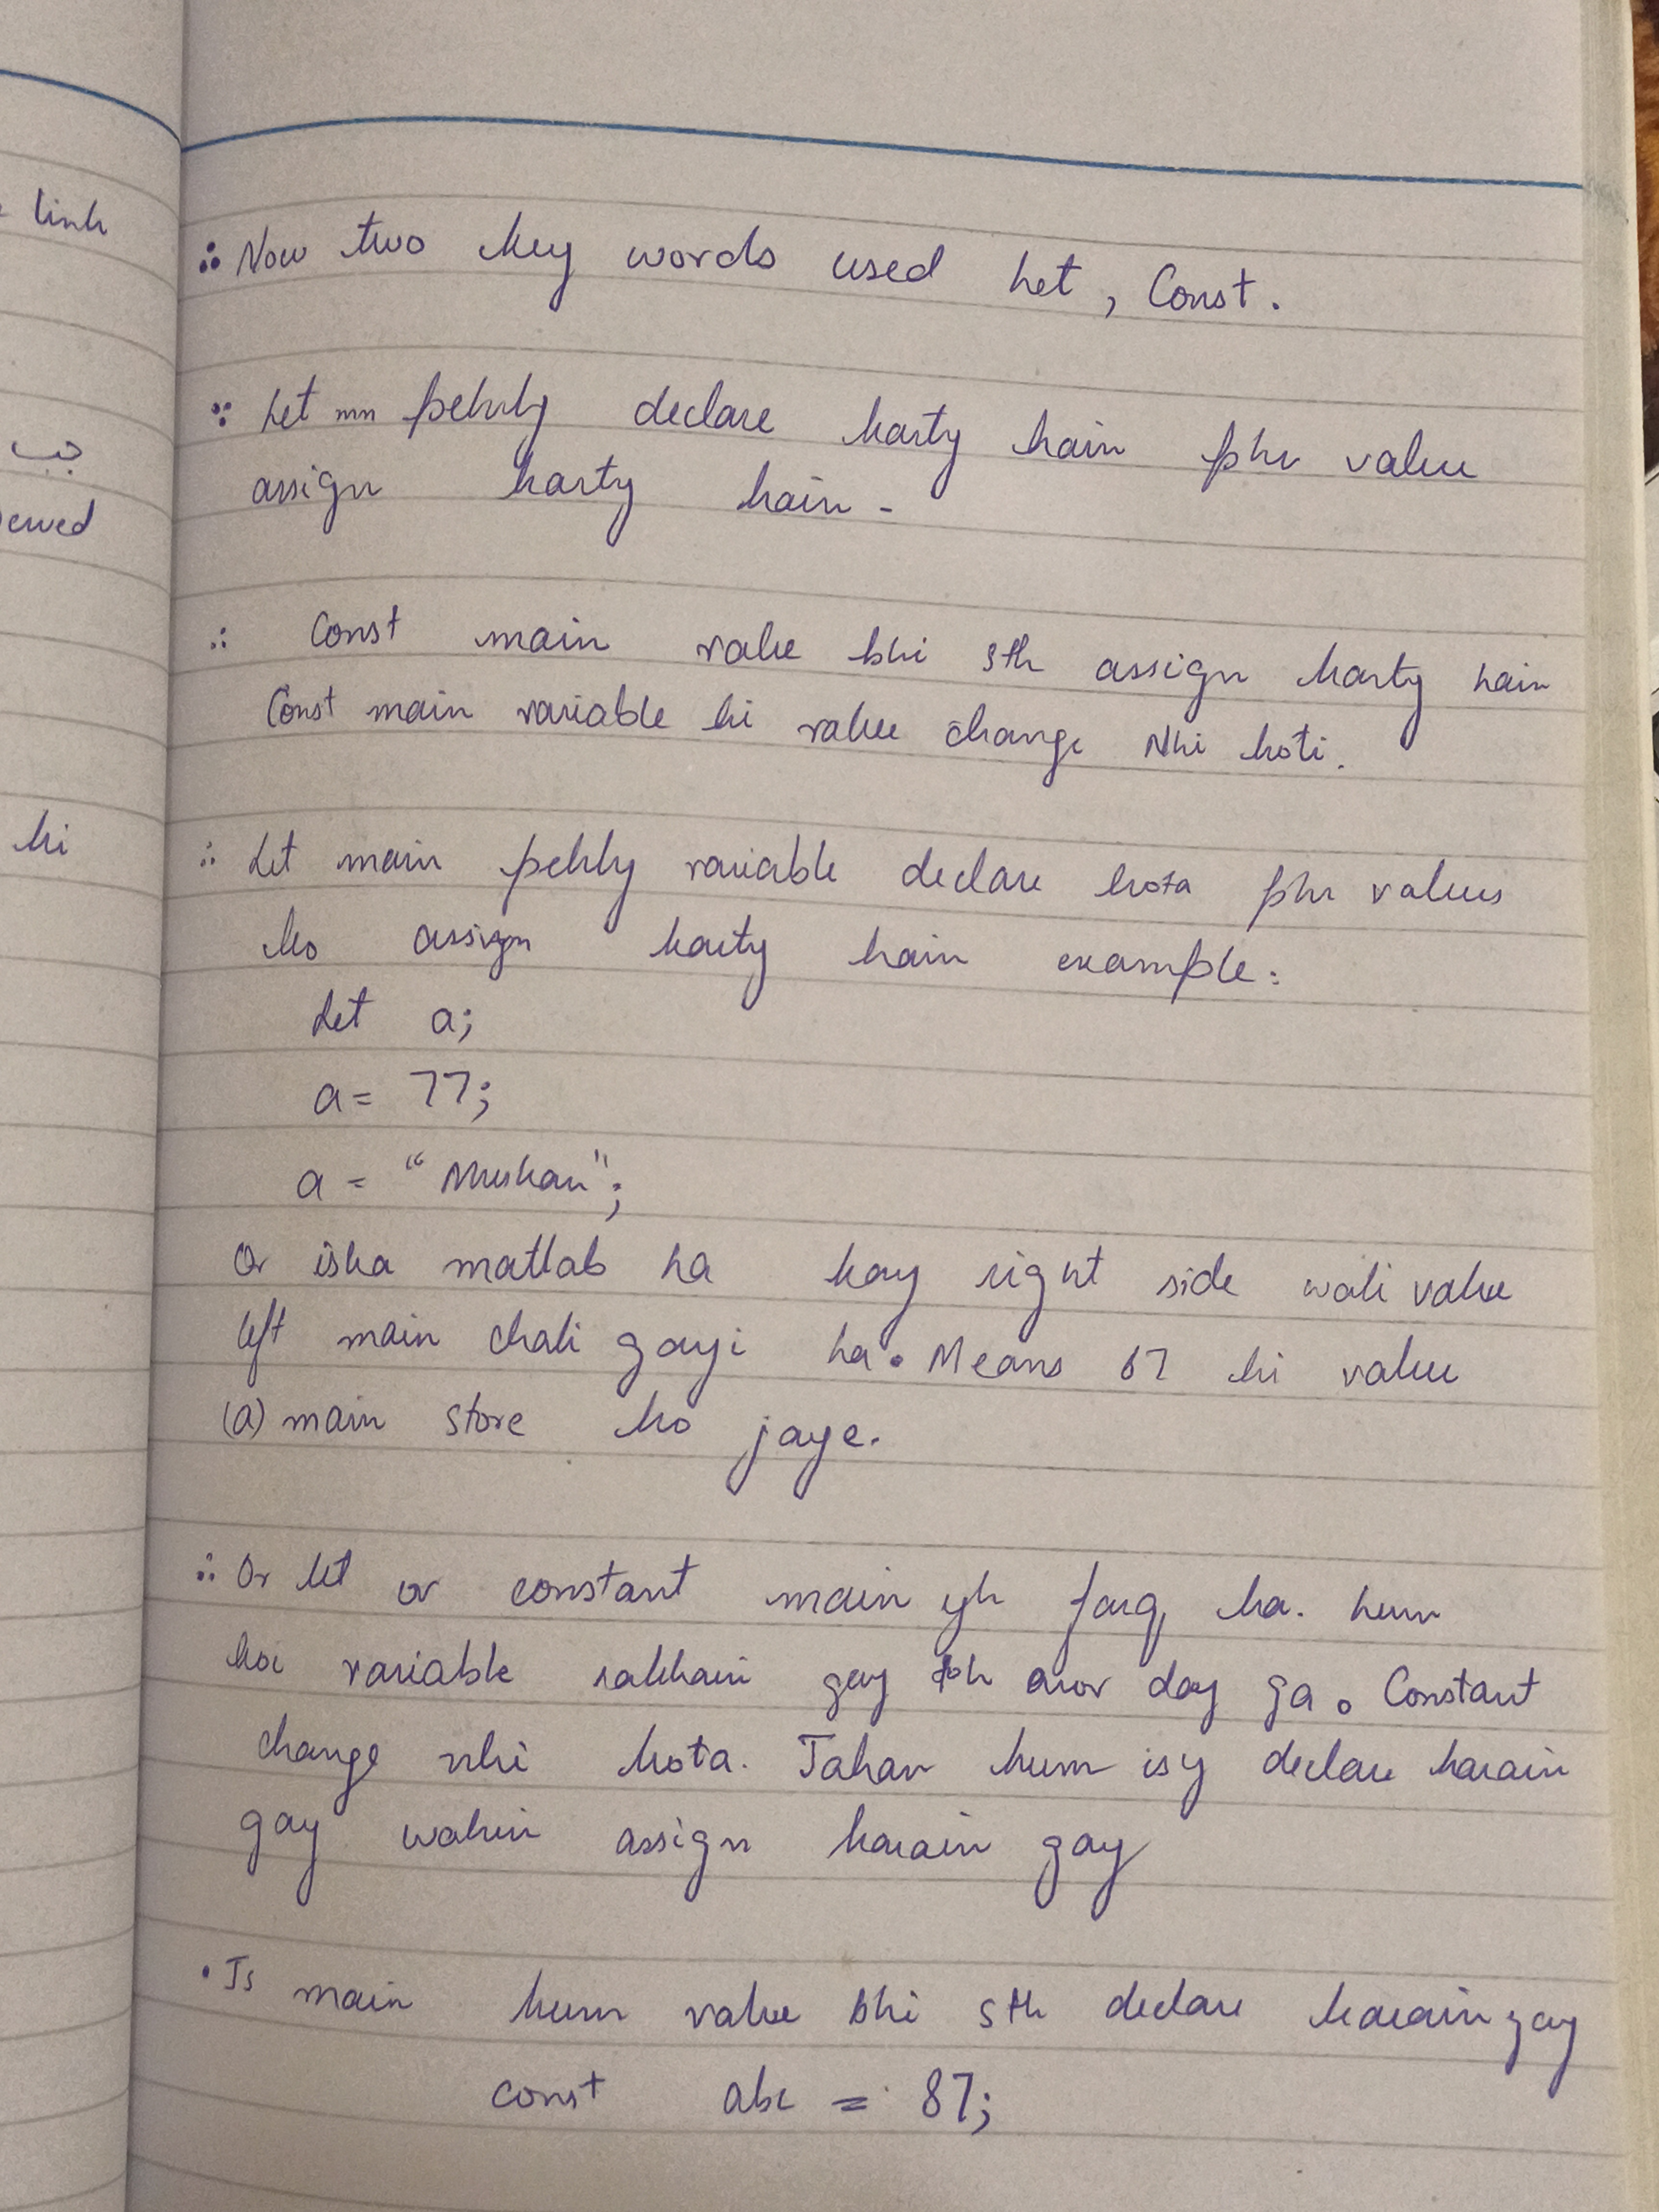 link
جب
erved
ki
∴ Now two key words used Let, Const.
∵ Let mn pehly declare karty hain phr value
assign karty hain -
∴ Const main value bhi sth assign karty hain
Const main variable ki value change Nhi hoti.
∴ Let main pehly variable declare hota phr values
ko assign karty hain example:
Let a;
a = 77;
a = "Muskan";
Or iska matlab ha kay right side wali value
left main chali gayi ha. Means 67 ki value
(a) main store ho jaye.
∴ Or let or constant main yh farq ha. hum
koi variable rakhain gay error day ga. Constant
change nhi hota. Jahan hum isy declare karain
gay wahin assign karain gay
• Is main hum value bhi sth declare karain gay
const abc = 87;